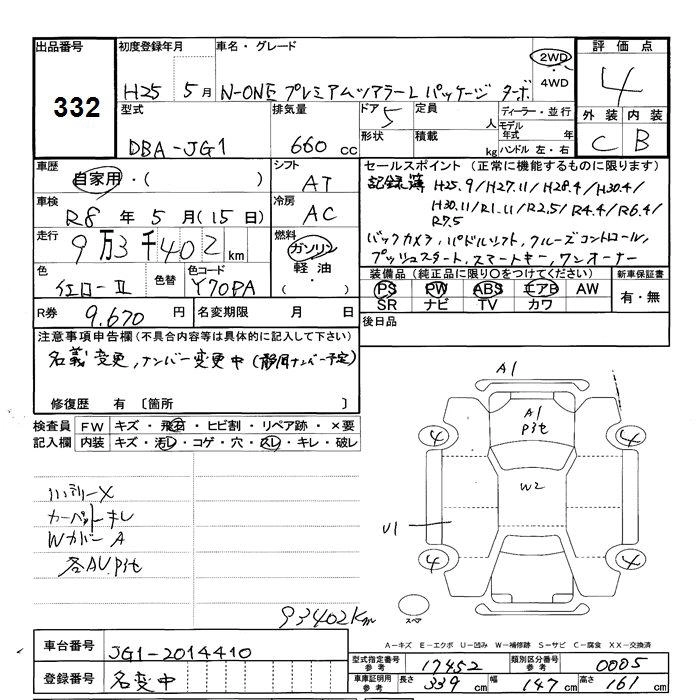 出品番号
332
初度登録年月
H25 5月
車名・グレード
N-ONE プレミアムツアラーL パッケージ ターボ
2WD
・
4WD
評価点
4
外装 内装
C B
型式
DBA-JG1
排気量
660 cc
ドア
5
定員
人
ディーラー・並行
モデル
年式 年
形状
積載
kg
ハンドル 左・右
車歴
自家用・( )
シフト
AT
車検
R8 年 5 月(15 日)
冷房
AC
走行
9 万 3 千 402 km
燃料
ガソリン
軽油
( )
色
イエローII
色替
色コード
Y70PA
R券
9,670 円
名変期限 月 日
セールスポイント(正常に機能するものに限ります)
記録簿 H25.9/H27.11/H28.4/H30.4/
H30.11/R1.11/R2.5/R4.4/R6.4/
R7.5
バックカメラ,パドルシフト,クルーズコントロール,
プッシュスタート,スマートキー,ワンオーナー
装備品(純正品に限り〇をつけてください)
PS PW ABS エアB AW
SR ナビ TV カワ
新車保証書
有・無
後日品
注意事項申告欄(不具合内容等は具体的に記入して下さい)
名義変更,ナンバー変更中(静岡ナンバー予定)
修復歴 有〔箇所 〕
検査員
記入欄
FW キズ・飛石・ヒビ割・リペア跡・×要
内装 キズ・汚レ・コゲ・穴・スレ・キレ・破レ
バッテリーX
カーペットキレ
Wカバー A
各AU.Pit
93402Km
A1
A1
Pit
4 4
W2
U1
4 4
スペア
A-キズ E-エクボ U-凹み W-補修跡 S-サビ C-腐食 XX-交換済
車台番号
JG1-2014410
登録番号
名変中
型式指定番号
参考
17452
類別区分番号
参考
0005
車庫証明用
参考
長さ 339 cm 幅 147 cm 高さ 161 cm